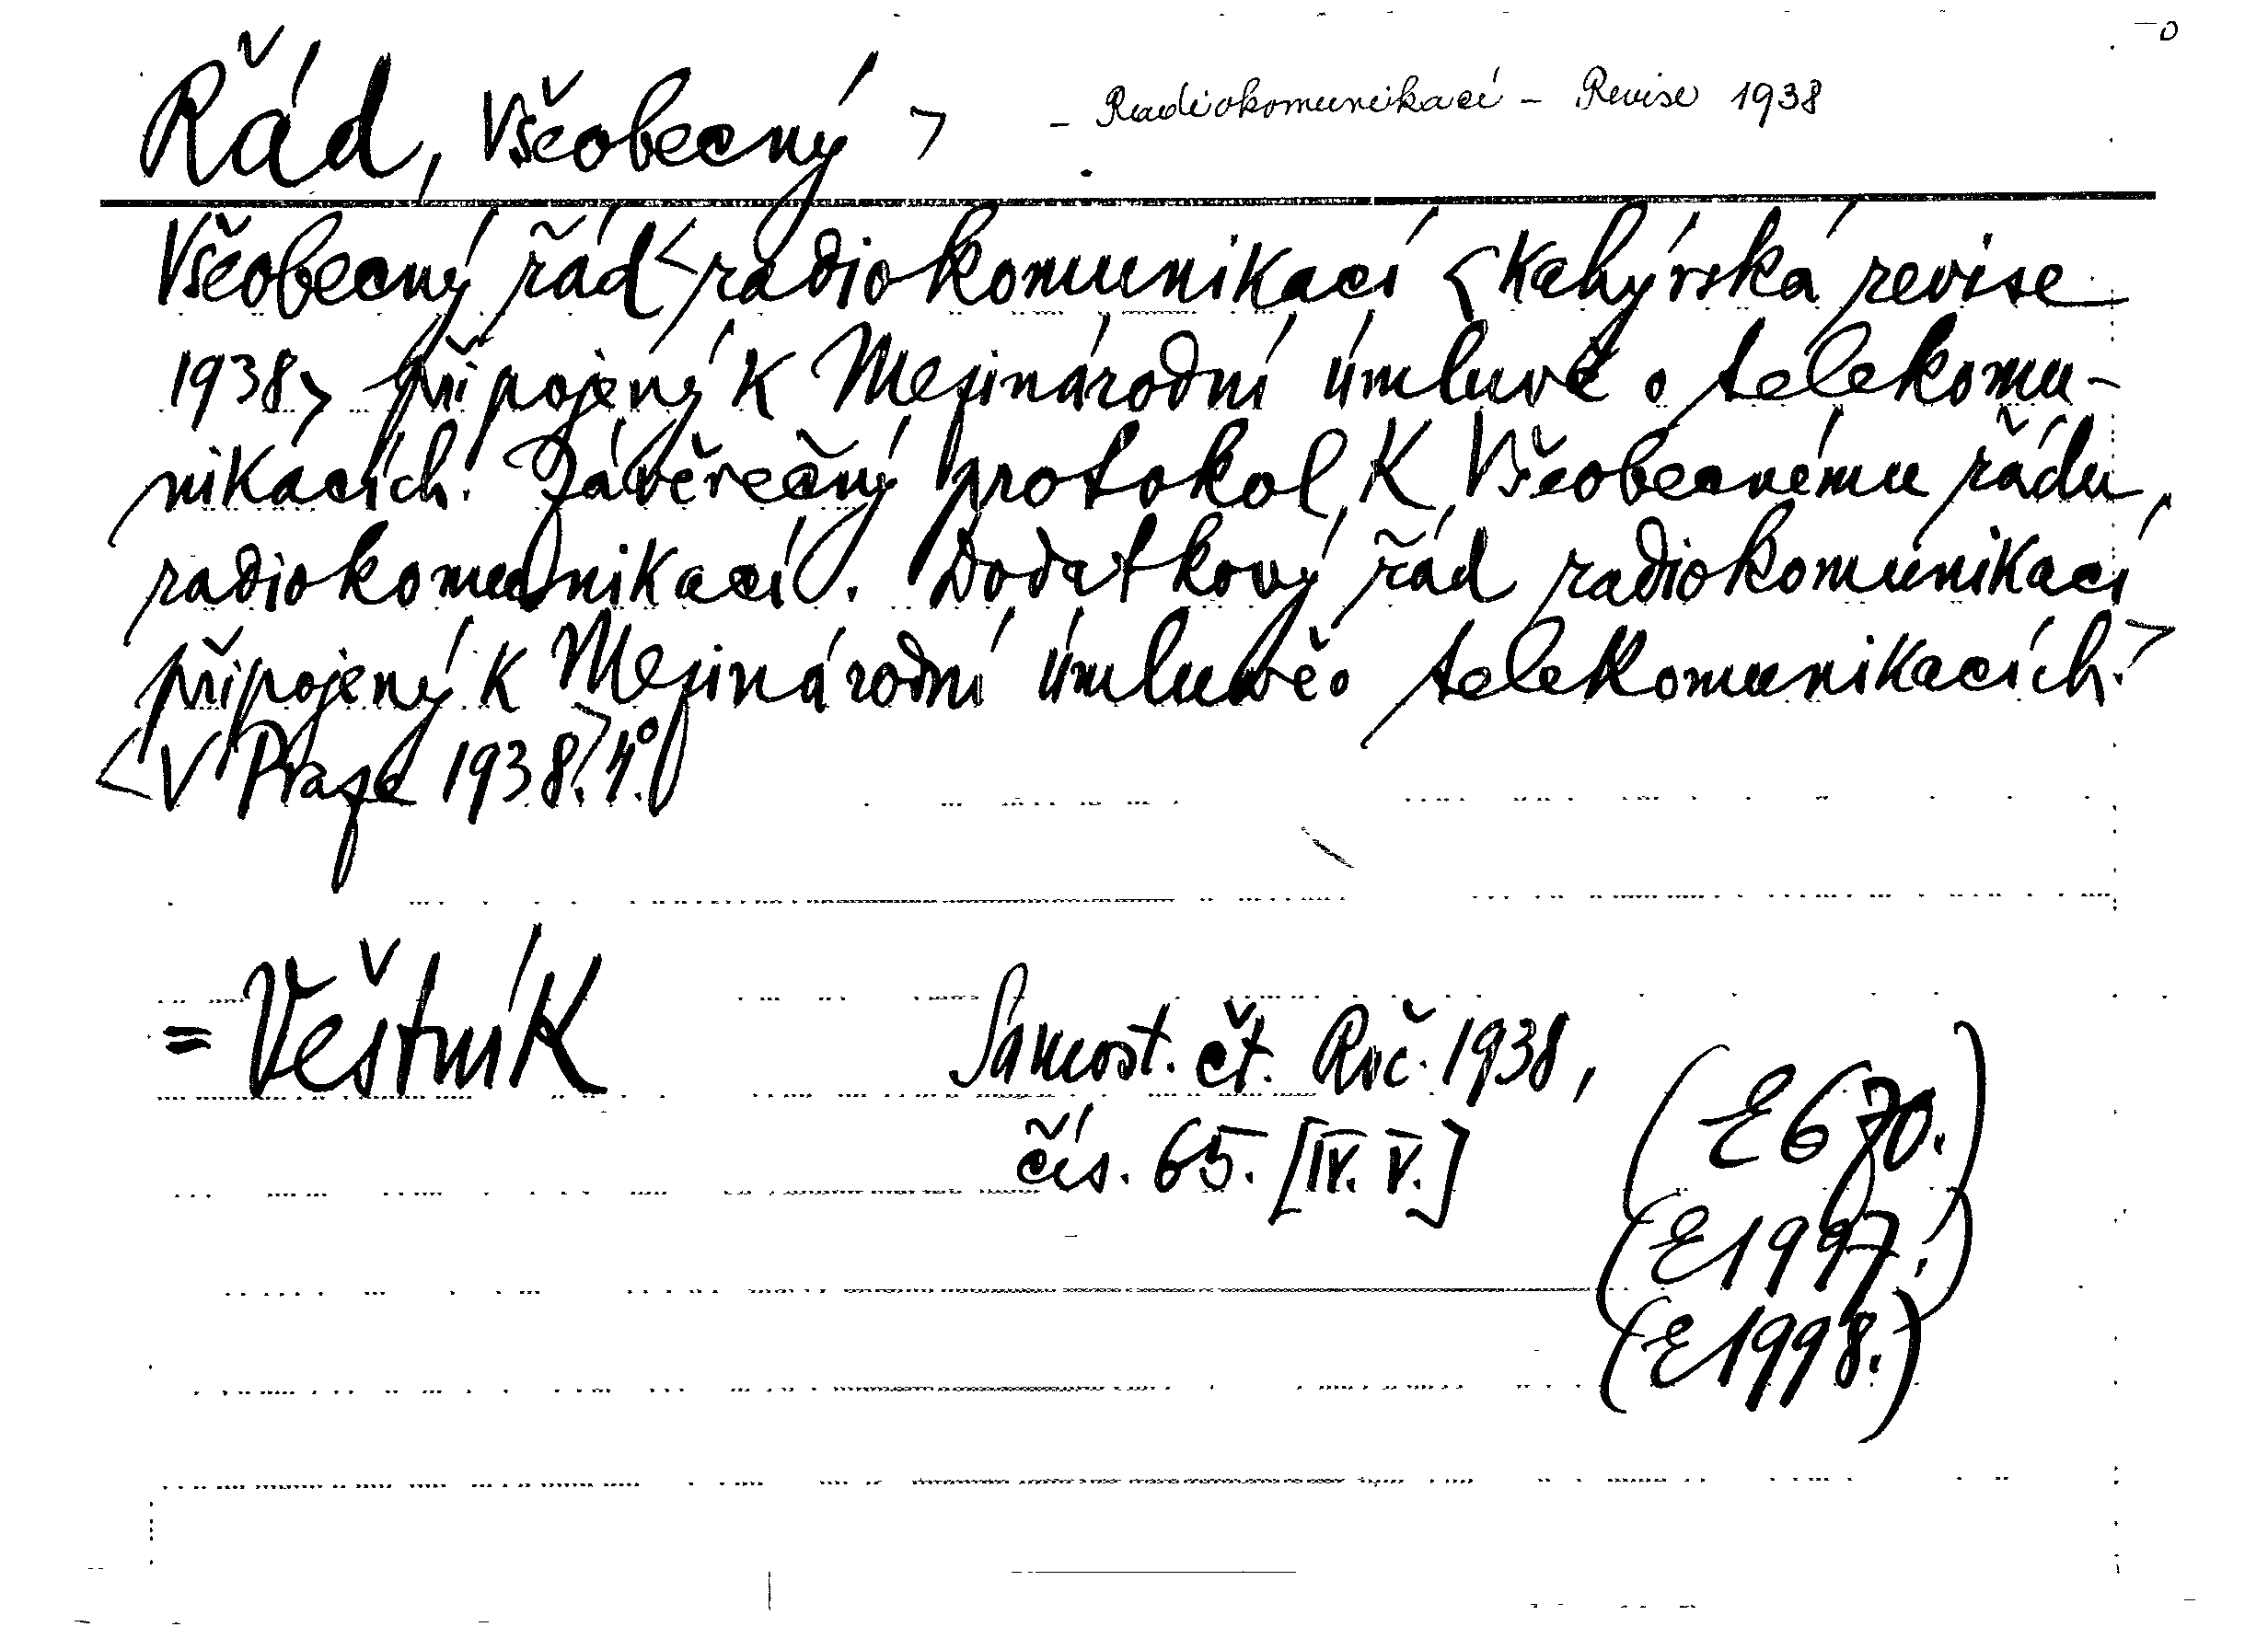 Řád, Všeobecný > - Radiokomunikací - Revise 1938
Všeobecný řád < radiokomunikací < Kahýrská revise
1938 > připojený k Mezinárodní úmluvě o telekomu-
nikacích. Závěrečný protokol k Všeobecnému řádu
radiokomunikací. Dodatkový řád radiokomunikací
připojený k Mezinárodní úmluvě o telekomunikacích. >
< V Praze 1938. > 4°.
= Věštník Samost. čt. Roč. 1938,
čís. 65. [IV. V.]
(E 670.)
(E 1997.)
(E 1998.)